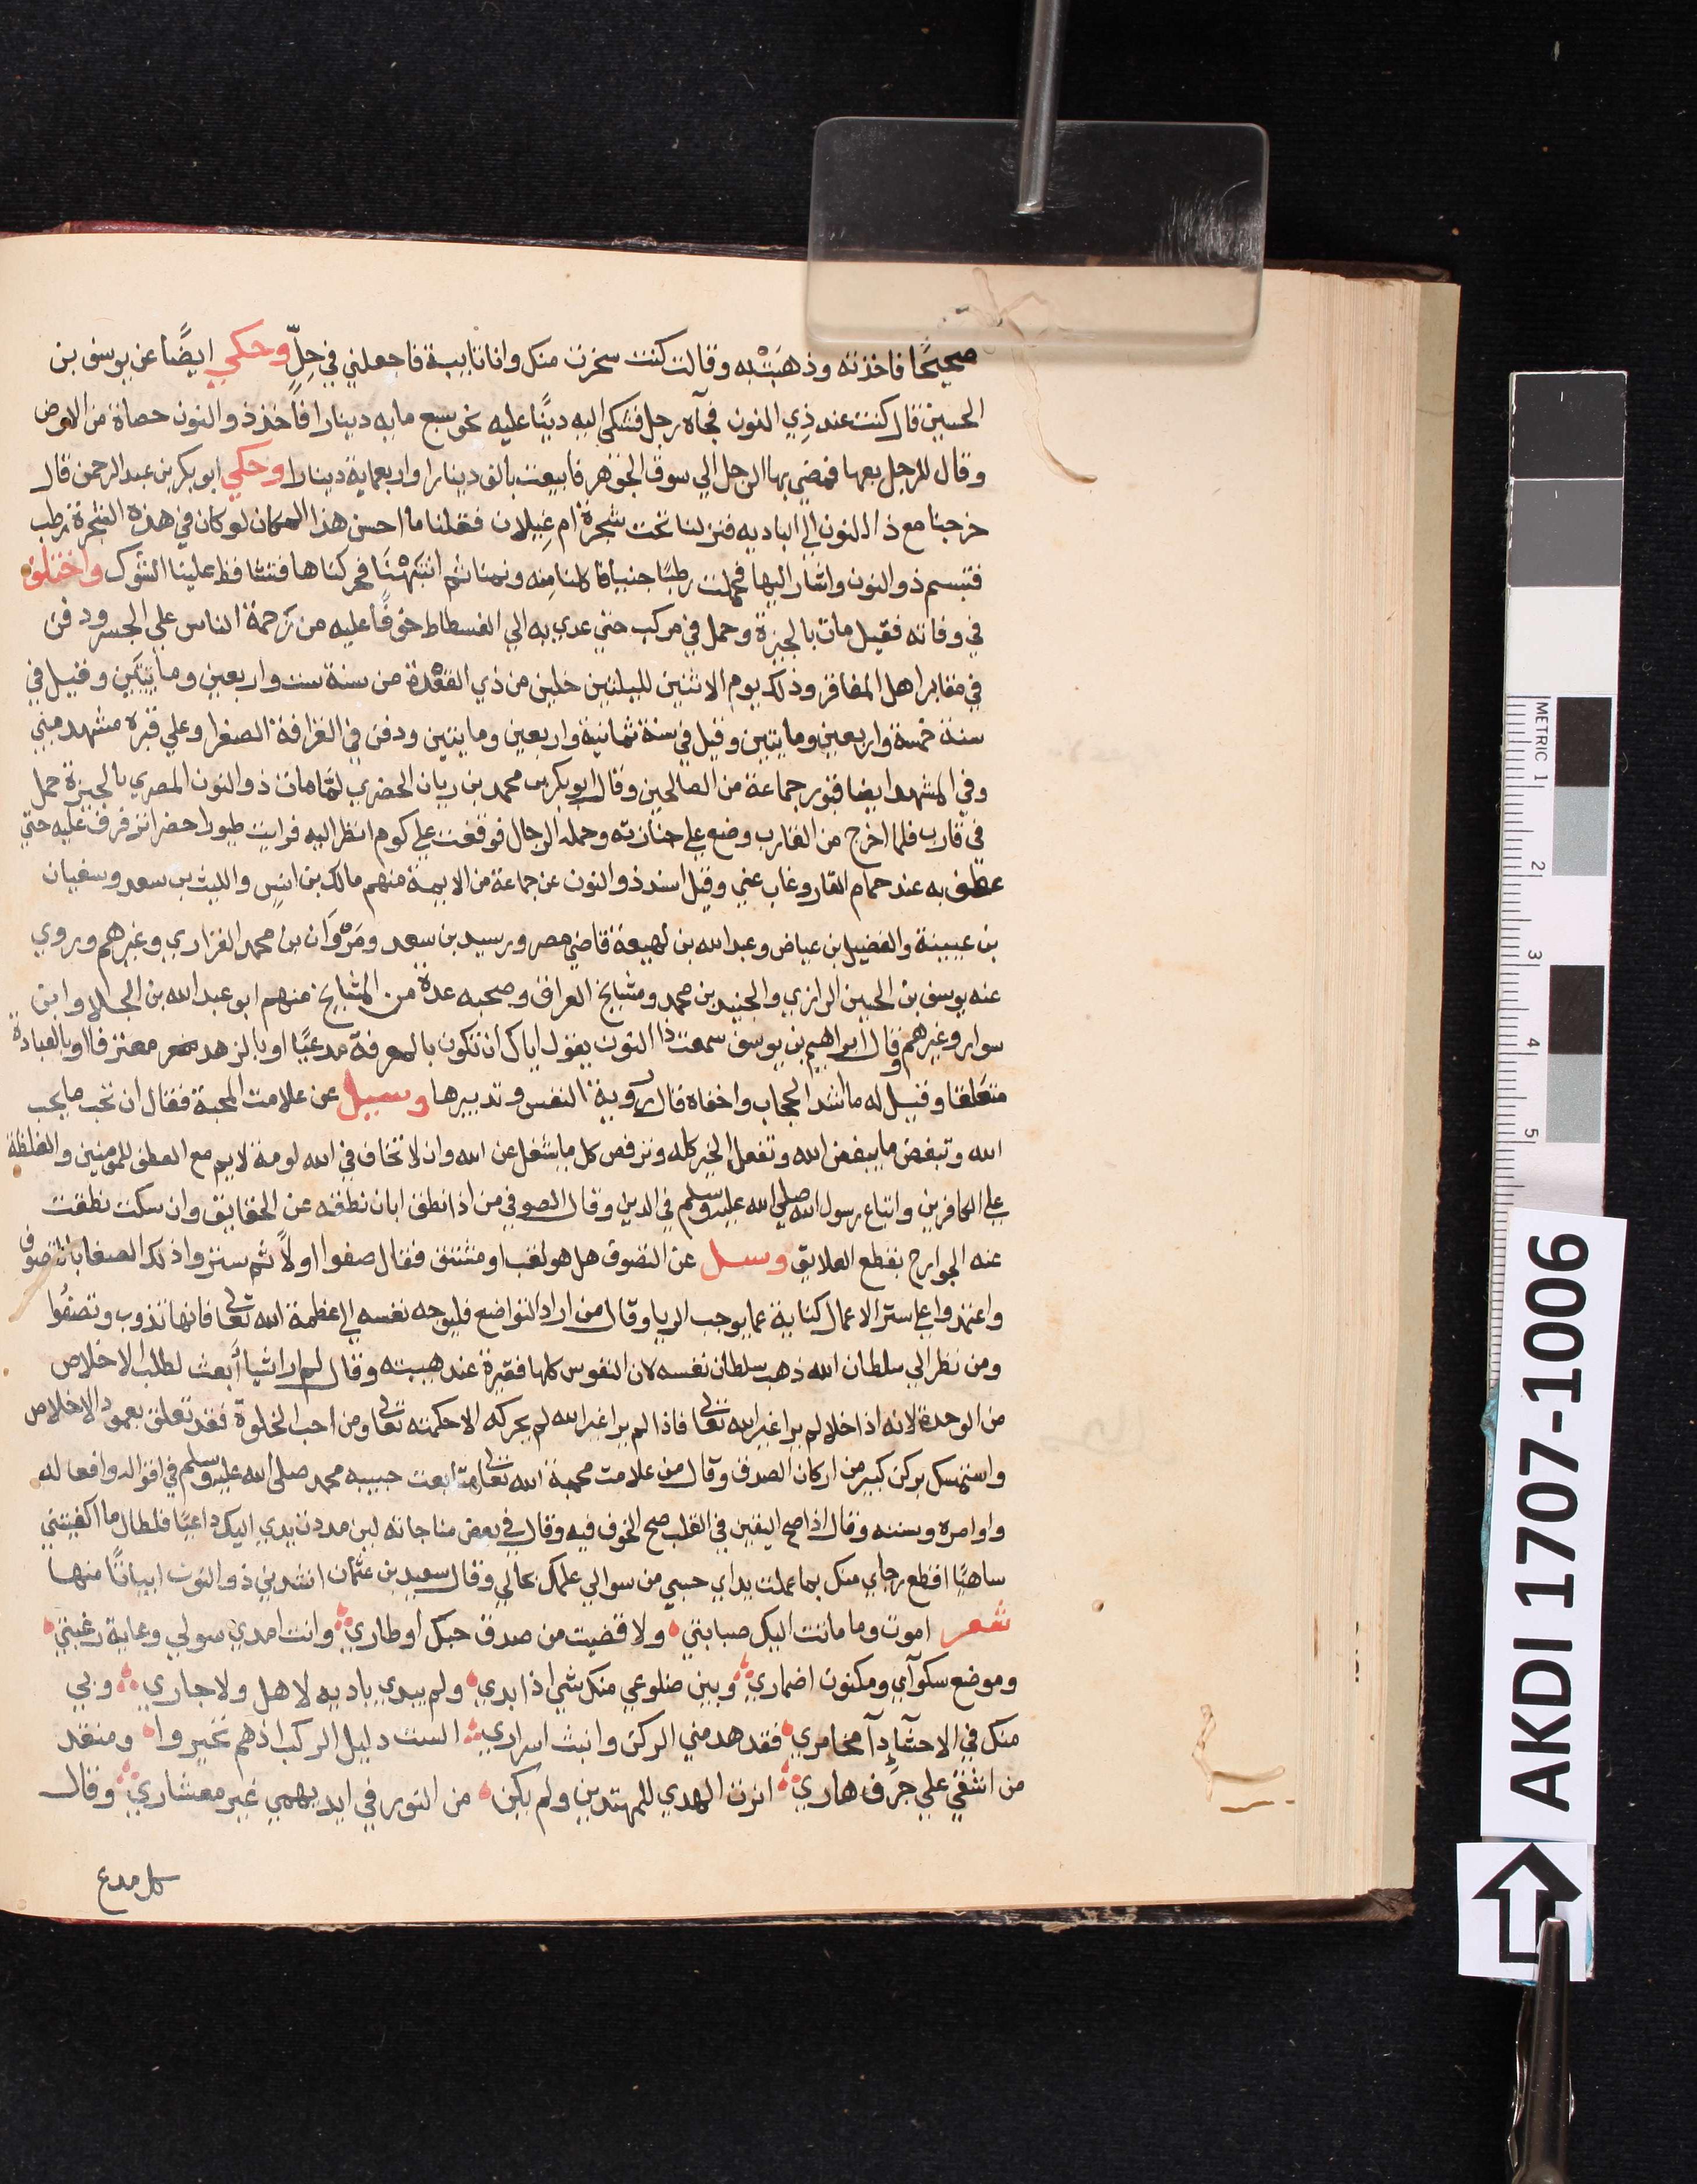 صحيحًا فاخذته وذهبت به وقالت كنت سخرت منك وانا تايبة فاجعلني في حلٍّ وحكي ايضًا عن يوسف بن
الحسين قال كنت عند ذي النون فجآه رجل فشكى اليه دينًا عليه نحو سبع مايه دينارا فاخذ ذو النون حصاة من الارض
وقال للرجل بعها فمضي بها الرجل الي سوق الجوهر فابيعت بالف دينارا واربعماية دينارا وحكي ابو بكر بن عبد الرحمن قال
خرجنا مع ذا النون الي الباديه فنزلنا تحت شجرة ام غيلان فقلنا ما احسن هذا المكان لو كان في هذه الشجرة رطب
فتبسم ذو النون واشار اليها فحملت رطبًا جنيا فاكلنا منه ونمنا ثم انتبهنا فحركناها فتساقط علينا الشوك واختلف
في وفاته فقيل مات بالجيزة وحمل في مركب حتي عدي به الي الفسطاط خوفًا عليه من زحمة الناس علي الجسر ودفن
في مقابر اهل المعافر وذلك يوم الاثنين لليلتين خلين من ذي القعدة من سنة ست واربعين ومايتين وقيل في
سنة خمسة واربعين ومايتين وقيل في سنة ثمانية واربعين ومايتين ودفن في القرافة الصغرا وعلي قبره مشهد مبني
وفي المشهد ايضا قبور جماعة من الصالحين وقال ابو بكر بن محمد بن ريان الحضري لما مات ذو النون المصري بالجيزة حمل
في قارب فلما اخرج من القارب وضع علي جنازته وحمله الرجال فوقفت علي كوم انظر اليه فرايت طيورا خضرا ترفرف عليه حتي
عطف به عند حمام القار وغاب عني وقيل اسند ذو النون عن جماعة من الايمة منهم مالك بن انس والليث بن سعد وسفيان
بن عيينة والفضيل بن عياض وعبد الله بن لهيعة قاضي مصر ورسيد بن سعد ومروان بن محمد الفزاري وغيرهم وروي
عنه يوسف بن الحسين الرازي والجنيد بن محمد ومشايخ العراق وصحبه عدة من المشايخ منهم ابو عبد الله بن الجلا وابن
سوار وغيرهم وقال ابراهيم بن يوسف سمعت ذا النون يقول اياك ان تكون بالمعرفة مدعيًا او بالزهد معترفا او بالعبادة
متعلقا وقيل له ما اشد الحجاب واخفاه قال رؤية النفس وتدبيرها وسيل عن علامت المحبة فقال ان تحب ما يحب
الله وتبغض ما يبغض الله وتفعل الخير كله وترفض كل ما يشغل عن الله وان لا تخاف في الله لومة لايم مع العطف للمومنين والغلظة
علي الكافرين واتباع رسول الله صلي الله عليه وسلم في الدين وقال الصوفي من اذا نطق ابان نطقه عن الحقايق وان سكت نطقت
عنه الجوارح بقطع العلايق وسيل عن التصوف هل هو لقب او مشتق فقال صفوا اولًا ثم ستروا ذلك الصفا بالتصوف
واعتمدوا علي ستر الاعمال كناية عما يوجب الريا وقال من اراد التواضع فليوجه نفسه الي عظمة الله تعالي فانها تذوب وتصفوا
ومن نظر الي سلطان الله ذهب سلطان نفسه لان النفوس كلها فقيرة عند هيبته وقال لم ار شيا أبعث لطلب الاخلاص
من الوحدة لانه اذا خلا لم يرا غير الله تعالي فاذا لم يرا غير الله لم يحركه الا حكمته تعالي ومن احب الخلوة فقد تعلق بعمود الاخلاص
واستمسك بركن كبير من اركان الصدق وقال من علامت محبة الله تعالي متابعت حبيبه محمد صلي الله عليه وسلم في اقواله وافعاله
واوامره وسننه وقال اذا صح اليقين في القلب صح الخوف فيه وقال في بعض مناجاته لين مددت يدي اليك داعيًا فلطال ما اكفيتني
ساهيًا اقطع رجاي منك بما عملت يداي حسبي من سوالي علمك بحالي وقال سعيد بن عثمان انشدني ذو النون ابياتًا منها
شعر اموت وما ماتت اليك صبابتي ولا قضيت من صدق حبك اوطاري وانت امدي سولي وغاية رغبتي
وموضع سكوآي ومكنون اضماري وبين ضلوعي منك شي اذا بدي ولم يبدي باديه لاهل ولا جاري وبي
منك في الاحشآ دآ مخامري فقد هد مني الركن وانبث اسراري الست دليل الركب اذ هم تحيروا ومنقد
من اشفي علي جرف هاري انرت الهدي للمهتدين ولم يكن من النور في ايديهمي غير معشاري وقال
كل مدع
METRIC 1 2 3 4 5
AKDI 1707-1006